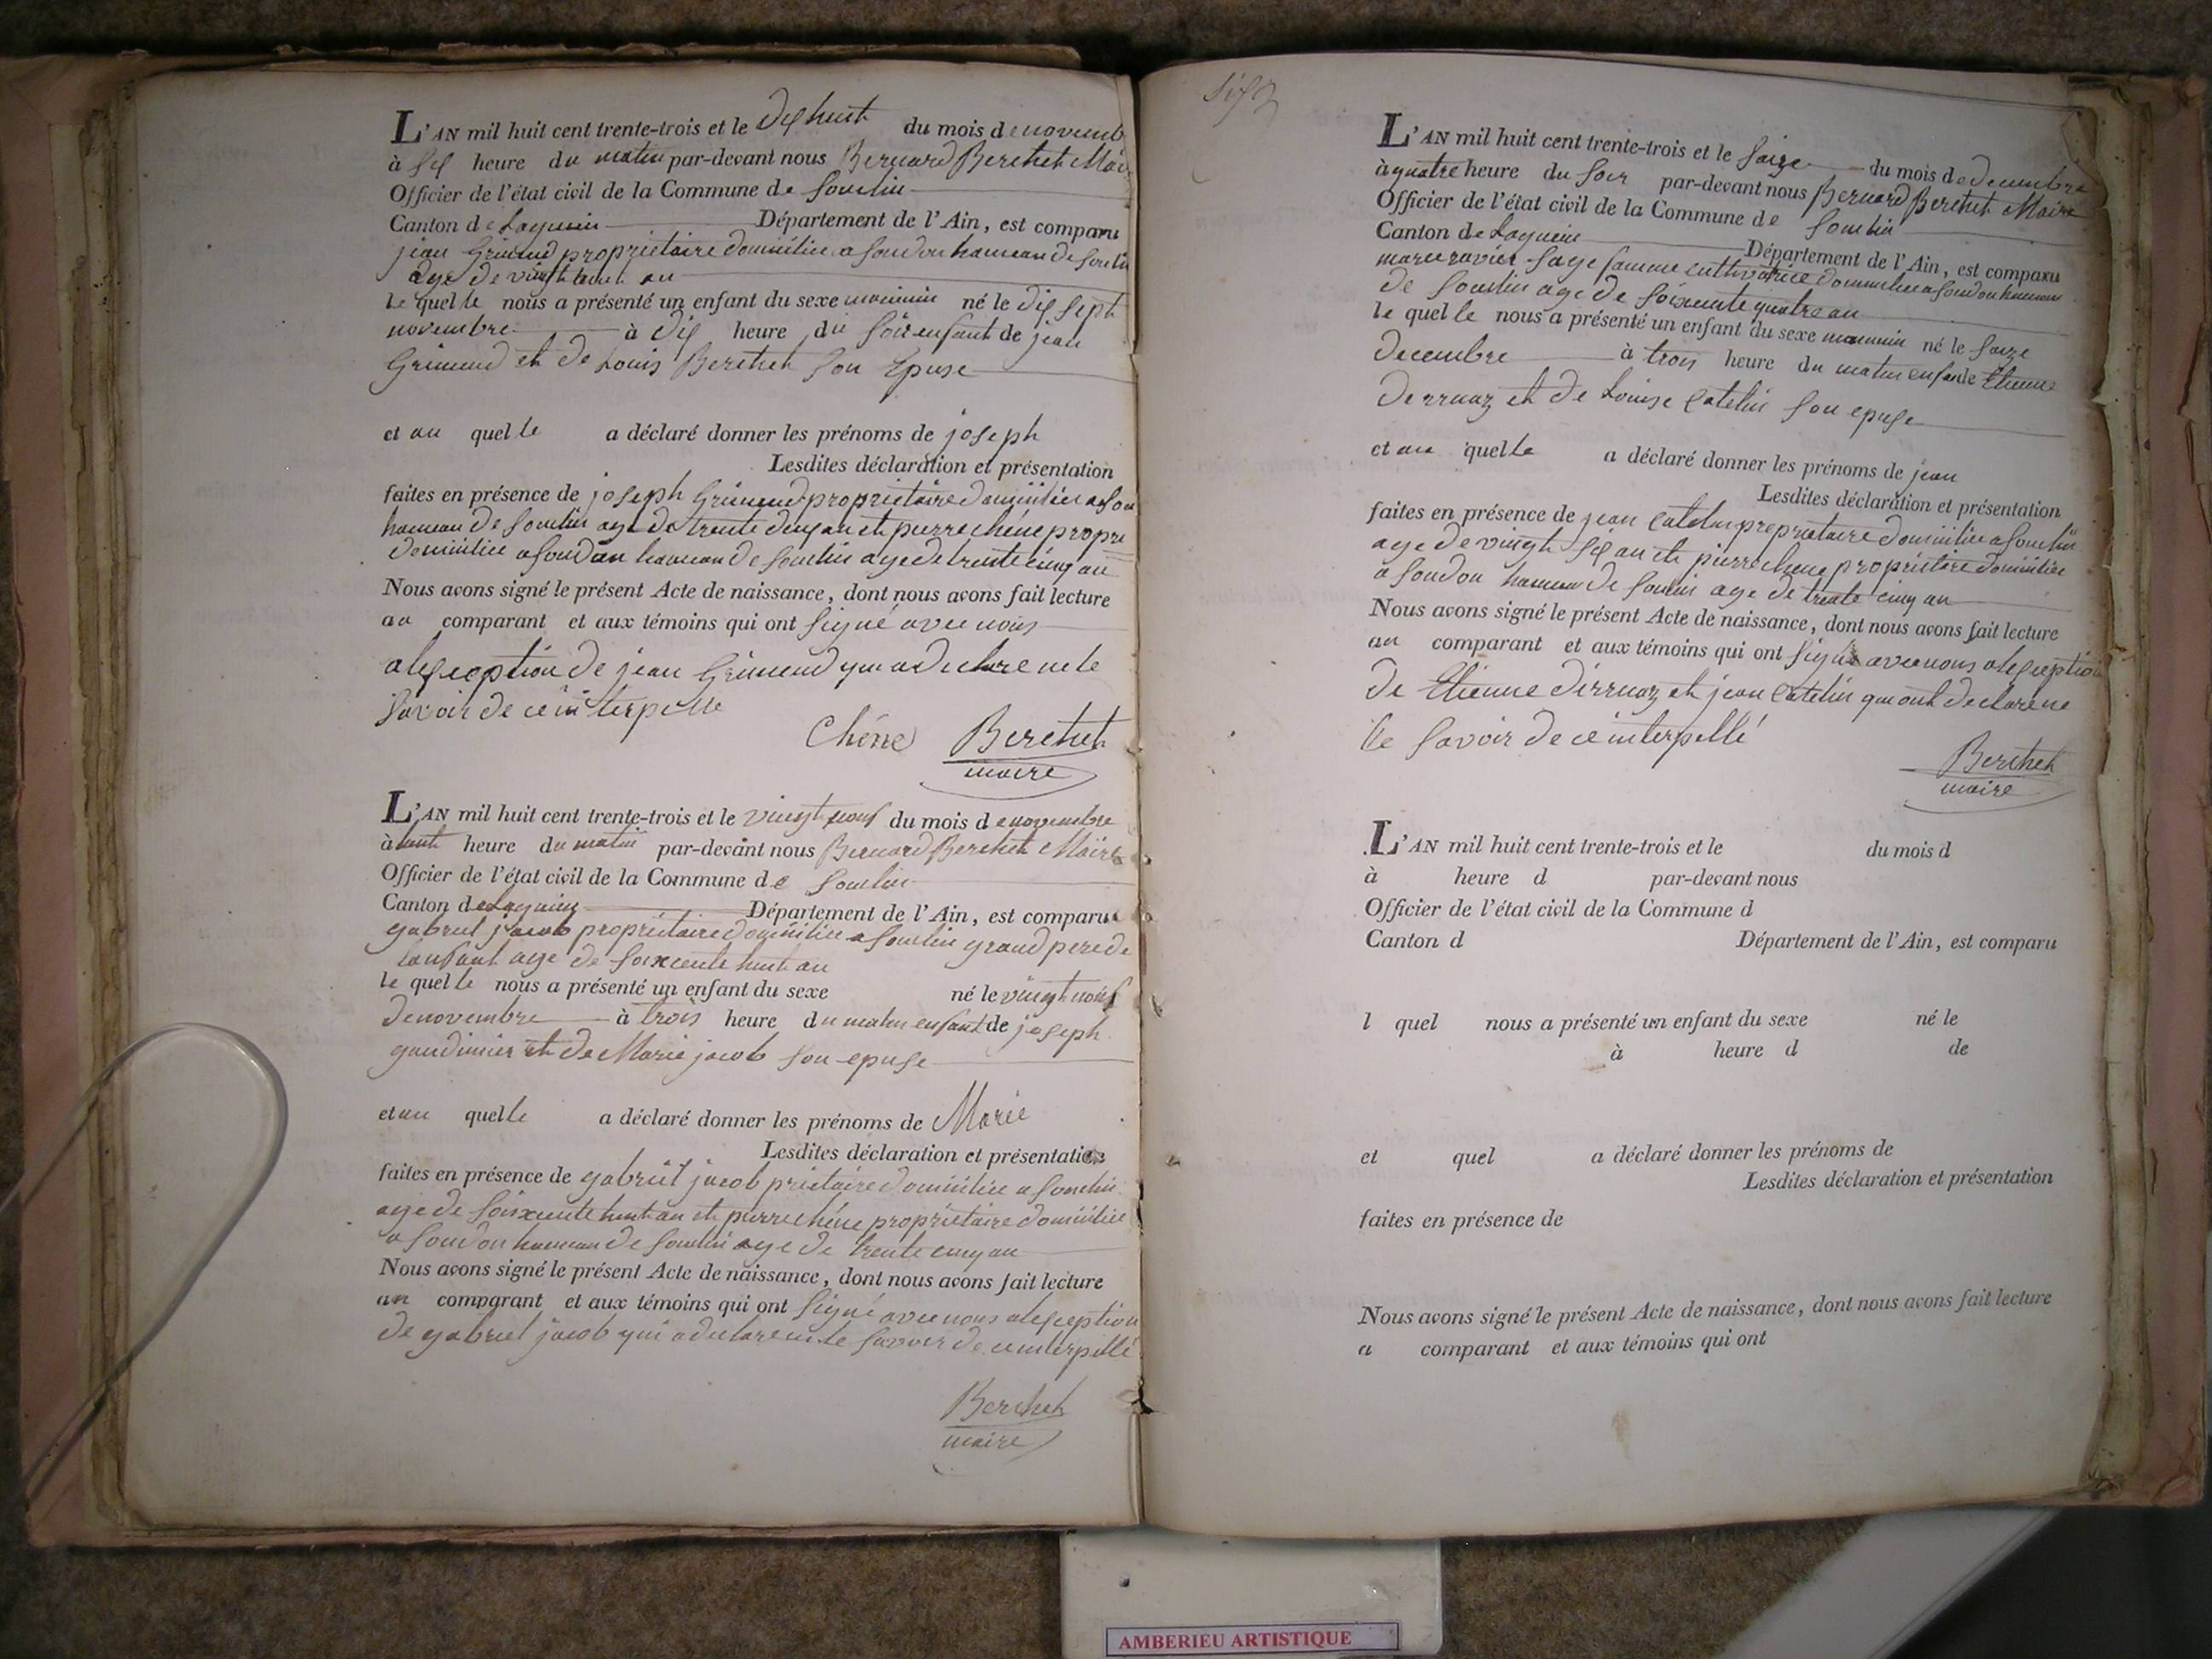 L'AN mil huit cent trente-trois et le dix huit du mois de novemb
à six heure du matin par-devant nous Bernard Berthet Mair
Officier de l'état civil de la Commune de Souclin
Canton de Lagnieu Département de l'Ain, est comparu
jean Grimend propriétaire domicilie a Soudon hameau de Souclin
age de vingt huit an
le quel le nous a présenté un enfant du sexe né le dix sept
novembre à dix heure du soir enfant de jean
Grimend et de Louis Berthet son Epuse
et au quelle a déclaré donner les prénoms de joseph
Lesdites déclaration et présentation
faites en présence de joseph Grimend propriétaire domicilie a Sou
hameau de Souclin age de trente deux an et pierre chêne propri
domicilie a Soudon hameau de Souclin age de trente cinq an
Nous avons signé le présent Acte de naissance, dont nous avons fait lecture
au comparant et aux témoins qui ont signé avec nous
alexception de jean Grimend qui a declare ne le
savoir de ce interpelle
Chêne Berthet
maire
L'AN mil huit cent trente-trois et le vingt nouf du mois de novembre
à huit heure du matin par-devant nous Bernard Berthet Maire
Officier de l'état civil de la Commune de Souclin
Canton de Lagnieu Département de l'Ain, est comparu
gabriel jacob propriétaire domicilie a Souclin grand pere de
lenfant age de soixcente huit an
le quel le nous a présenté un enfant du sexe né le vingt nouf
de novembre à trois heure du matin enfant de joseph
gaudinier et de Marie jacob son epuse
et au quelle a déclaré donner les prénoms de Marie
Lesdites déclaration et présentation
faites en présence de gabriel jacob prietaire domicilie a Souclin
age de soixcente huit an et pierre chêne propriétaire domicilie
a Soudon hameau de Souclin age de trente cinq an
Nous avons signé le présent Acte de naissance, dont nous avons fait lecture
au comparant et aux témoins qui ont signé avec nous alexception
de gabriel jacob qui a declare ne le savoir de ce interpellé
Berthet
maire
L'AN mil huit cent trente-trois et le saize du mois de decembre
à quatre heure du soir par-devant nous Bernard Berthet Maire
Officier de l'état civil de la Commune de Souclin
Canton de Lagnieu Département de l'Ain, est comparu
marie ravier sage famme cultivatrice domicilie a Soudon hameau
de Souclin age de soixcente quatre an
le quel le nous a présenté un enfant du sexe né le saize
decembre à trois heure du matin enfan de Etienne
Derruaz et de Louise Catelin son epuse
et au quelle a déclaré donner les prénoms de jean
Lesdites déclaration et présentation
faites en présence de jean Catelin propriétaire domicilie a Souclin
age de vingt six an et pierre chene propriétaire domicilie
a Soudon hameau de Souclin age de trente cinq an
Nous avons signé le présent Acte de naissance, dont nous avons fait lecture
au comparant et aux témoins qui ont signé avec nous alexception
de Etienne Derruaz et jean Catelin qui ont declare ne
le savoir de ce interpellé
Berthet
maire
L'AN mil huit cent trente-trois et le du mois d
à heure d par-devant nous
Officier de l'état civil de la Commune d
Canton d Département de l'Ain, est comparu
l quel nous a présenté un enfant du sexe né le
à heure d de
et quel a déclaré donner les prénoms de
Lesdites déclaration et présentation
faites en présence de
Nous avons signé le présent Acte de naissance, dont nous avons fait lecture
a comparant et aux témoins qui ont
AMBERIEU ARTISTIQUE